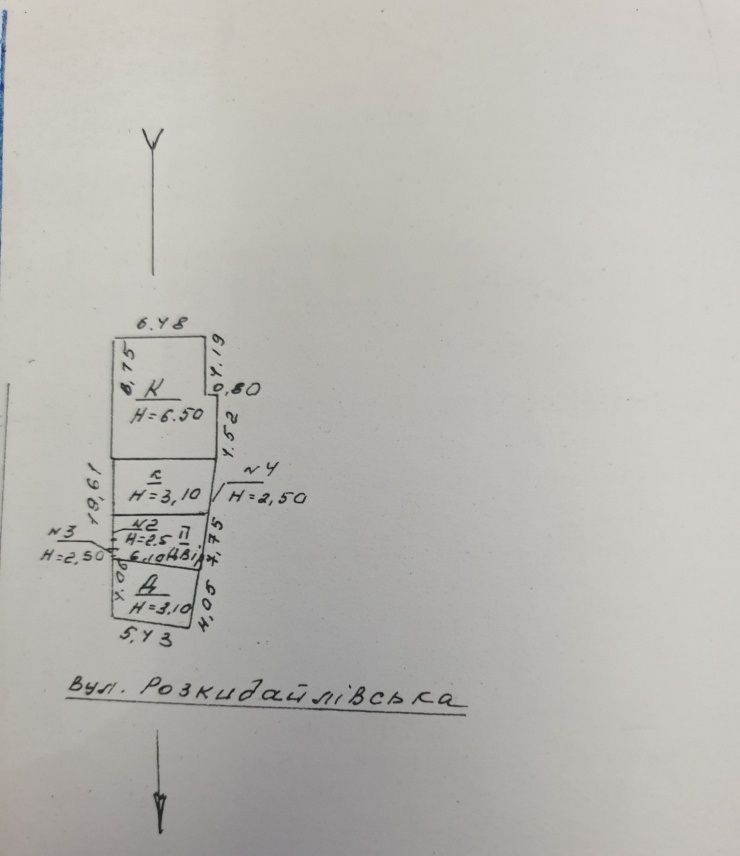 6.48
4.19
8,75
0,80
К
Н=6.50
4.52
к
Н=3,10
№4
Н=2,50
19,61
№2
Н=2.5 II
№3
Н=2,50
6.10 Двір
7,75
4.06
Д
Н=3,10
4,05
5,43
Вул. Розкидайлівська